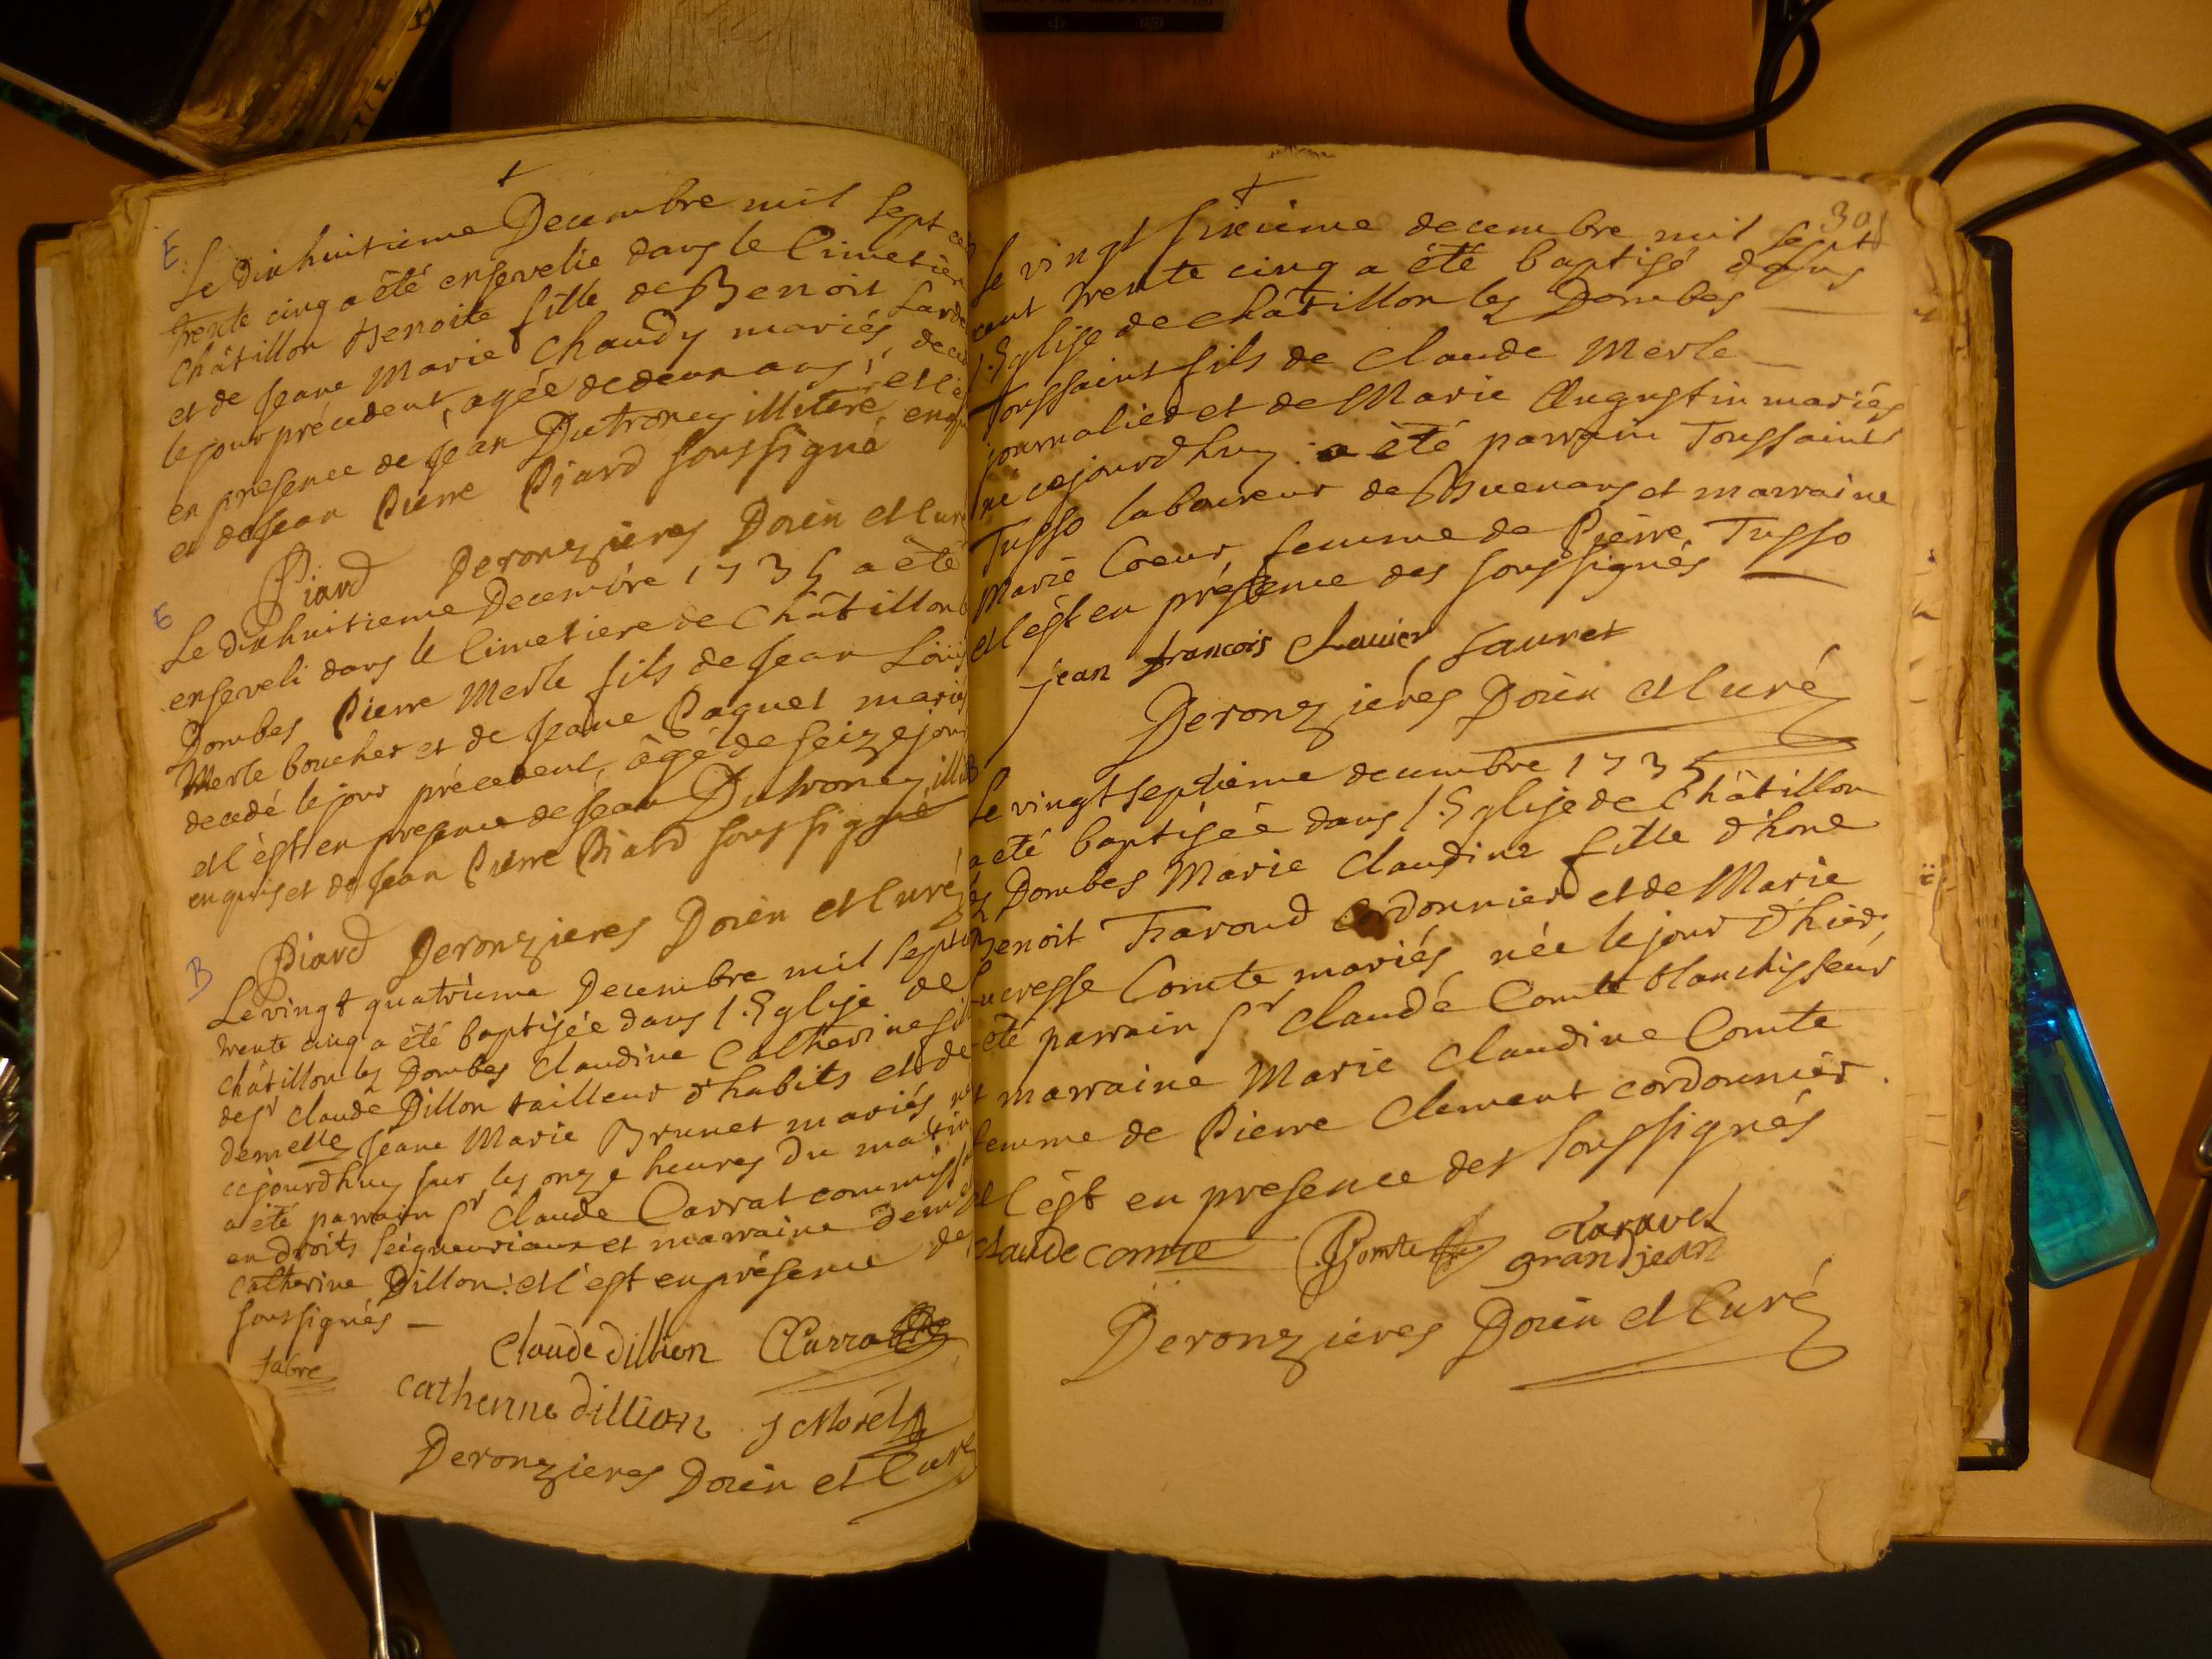 E
Le dixhuitieme Decembre mil sept
trente cinq a été ensevelie dans le Cimetier
Châtillon Benoite fille de Benoit Lard
et de Jeane Marie Chaudy mariés, dece
le jour précedent, agée de deux ans; et l'e
en presence de Jean Dutroney illitéré enq
et de Jean Pierre Piard soussigné
Piard Deronzieres Doien et Curé
E
Le dixhuitieme Decembre 1735 a été
enseveli dans le Cimetiere de Châtillon
Dombes Pierre Merle fils de Jean Loüis
Merle boucher et de Jeane Paquet mariés
decedé le jour précedent, âgé de seize jour
et l'est en presence de Jean Dutroney, illit
enquis et de Jean Pierre Piard soussigné
Piard Deronzieres Doien et Curé
B
Le vingt quatrieme Decembre mil sept
trente cinq a été baptisée dans l'Eglise de
châtillon les Dombes Claudine Catherine
de sr Claude Dillon tailleur d'habits et de
demelle Jeane Marie Brunet mariés
cejourdhuy sur les onze heures du matin
a été parrain sr Claude Carrat commiss
en droits seigneuriaux et marraine dem
Catherine Dillon: et l'est en présence des
soussignés
Claude dillion Carra
fabre
catherine dillion J Morel
Deronzieres Doien et Curé
30
Le vingt sixieme decembre mil sept
cent trente cinq a été baptisé dans
l'Eglise de châtillon les Dombes
Toussaint fils de Claude Merle
journalier et de Marie Augustin mariés
né cejourdhuy: a été parrain Toussaint
Tusso laboureur de Buenans et marraine
Marie Coeur femme de Pierre Tusso
et l'est en présence des soussignés
jean francois Chanier Lauret
Deronzieres Doien et Curé
B
Le vingt septieme decembre 1735
a été baptisée dans l'Eglise de Châtillon
les Dombes Marie Claudine fille d'hone
Benoit Faroud Cordonnier et de Marie
Lucresse Comte mariés née le jour d'hier,
été parrain sr Claude Comte blanchisseur
et marraine Marie Claudine Comte
femme de Pierre Clement cordonnier.
et l'est en presence des soussignés
Claude comte Taravel
grandjean
Deronzieres Doien et Curé